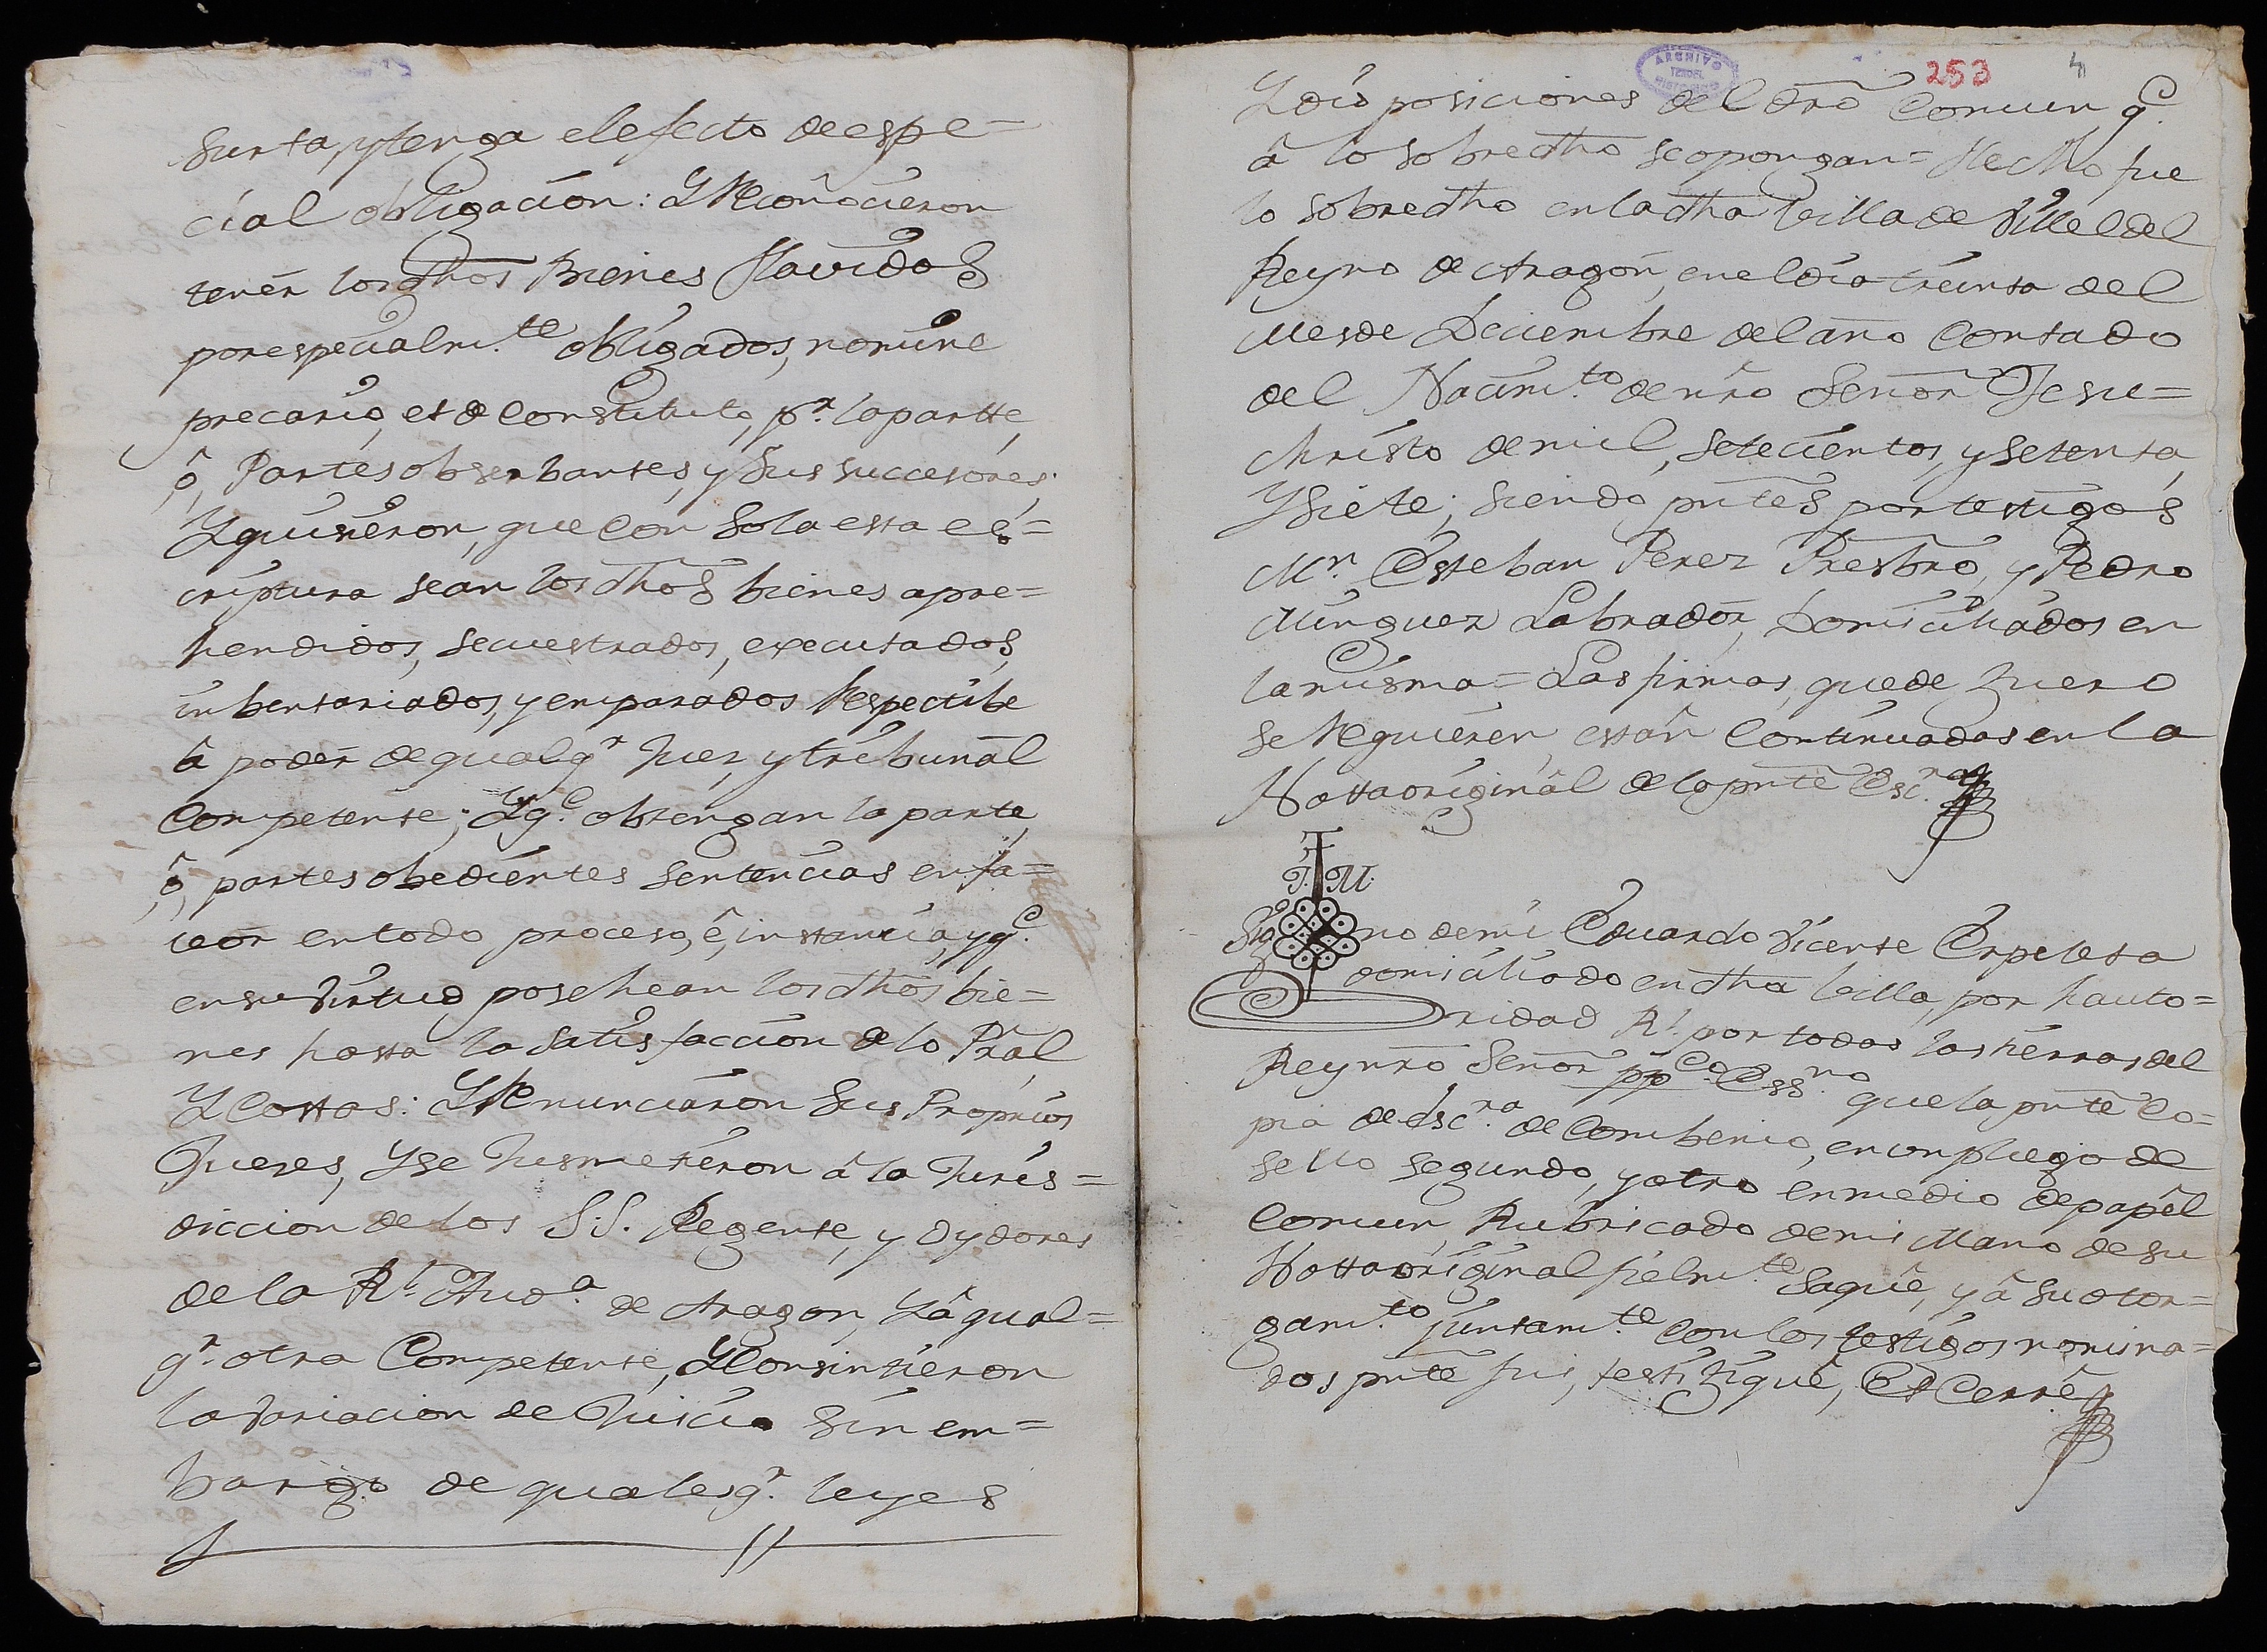 surta, y tenga el efecto de espe=
cial obligacion: Y Reconocieron
tenér los dhos Bienes Havidos
por especialm.te obligados, nomine
precario, et de Constituto, p.r la partte,
ô, Partes obserbantes, y sus succesores;
Y quisieron, que con sola esta es=
criptura sean los dhos bienes apre=
hendidos, secuestrados, executados,
inbentariados, y emparados Respectibe
â podér de qualq.r Juez, y tribunâl
Competente; Y q.e obtengan la parte,
ô, partes obedientes sentencias en fa=
vor en todo proceso, ê, instancia, y q.e
en su virtud posehean los dhos bie=
nes hasta la satisfaccion de lo Prâl,
Y Costtas: Y Renunciaron sus Proprios
Jueces, Y se Jusmetieron â la Juris=
diccion de los S.S. Regente, y Oydores
de la R.l Aud.a de Aragon, Y â qual=
q.r otra Competente, Y Consintieron
la variacion de Juicio sin em=
bargo de qualesq.r leyes
Y disposiciones del dro Comun, q.e
â lo sobredho se opongan = Hecho fue
lo sobredho en la dha Villa de Villel del
Reyno de Aragon, en el dia treinta del
Mes de Deciembre del año Contado
del Nacim.to de nro Señor Jesu=
Christo de mil, setecientos, y setenta,
Y siete; siendo pntes por testigos
M.n Esteban Perez Presbro, y Pedro
Minguez Labradór, Domiciliados en
la misma = Las firmas, que de fuero
se Requieren, están Continuadas en la
Notta originâl de la pnte Esc.ra
J. M.
Sig no de mi Eduardo Vicente Erpeleta
domiciliado en dha Villa, por hauto=
ridad R.l por todas las tierras del
Rey nro Señor pp.co Ess.no que la pnte Co=
pia de Esc.ra de Combenio, en un pliego de
sello segundo, y otro en medio de papêl
Comun, Rubricado de mi Mano de su
Notta originâl fielm.te saquê, y â su otor=
gam.to juntam.te con los testigos nomina=
dos pnte fui, testifiquê, Et Cerrê
253
4
ARCHIVO
HISTORICO
TERUEL